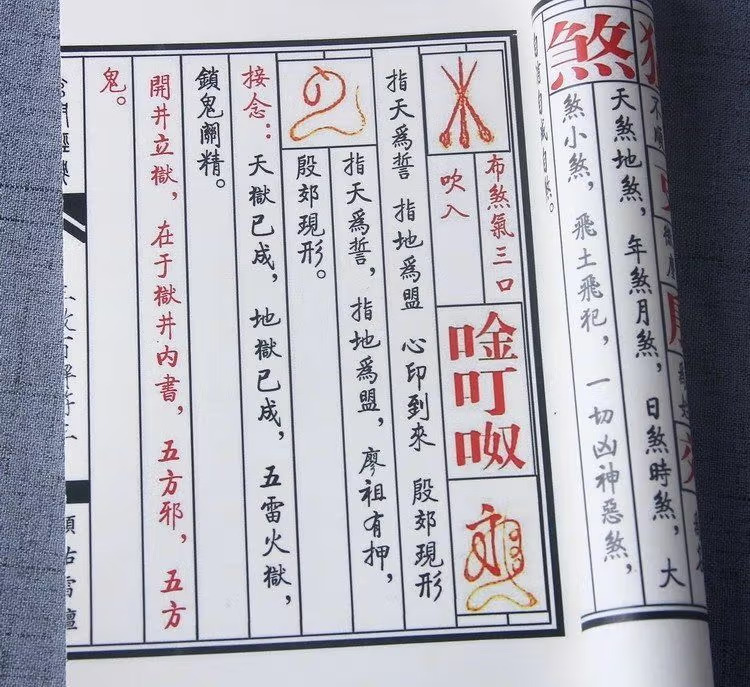 煞
天煞地煞，年煞月煞，日煞時煞，大
煞小煞，飛土飛犯，一切凶神惡煞，
布煞氣三口
吹入
唫叮呶
指天爲誓 指地爲盟 心印到來 殷郊現形
指天爲誓，指地爲盟，廖祖有押，
殷郊現形。
接念：天獄已成，地獄已成，五雷火獄，
鎖鬼關精。
開井立獄，在于獄井內書，五方邪，五方
鬼。